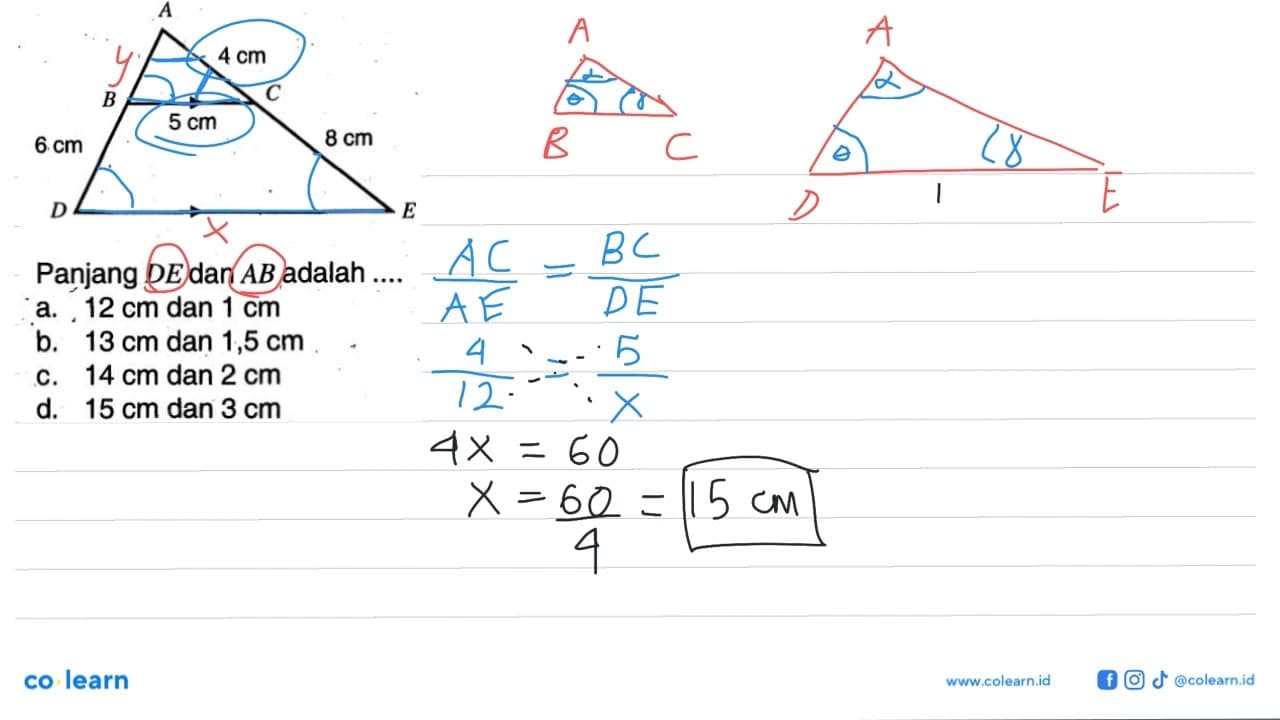 A
4 cm
y
B
C
5 cm
6 cm
8 cm
D
E
x
Panjang DE dan AB adalah ....
a. 12 cm dan 1 cm
b. 13 cm dan 1,5 cm
c. 14 cm dan 2 cm
d. 15 cm dan 3 cm
A
α
θ
γ
B
C
A
α
θ
γ
D
E
AC/AE = BC/DE
4/12 = 5/x
4x = 60
x = 60/4 = 15 cm
co learn
www.colearn.id
@colearn.id